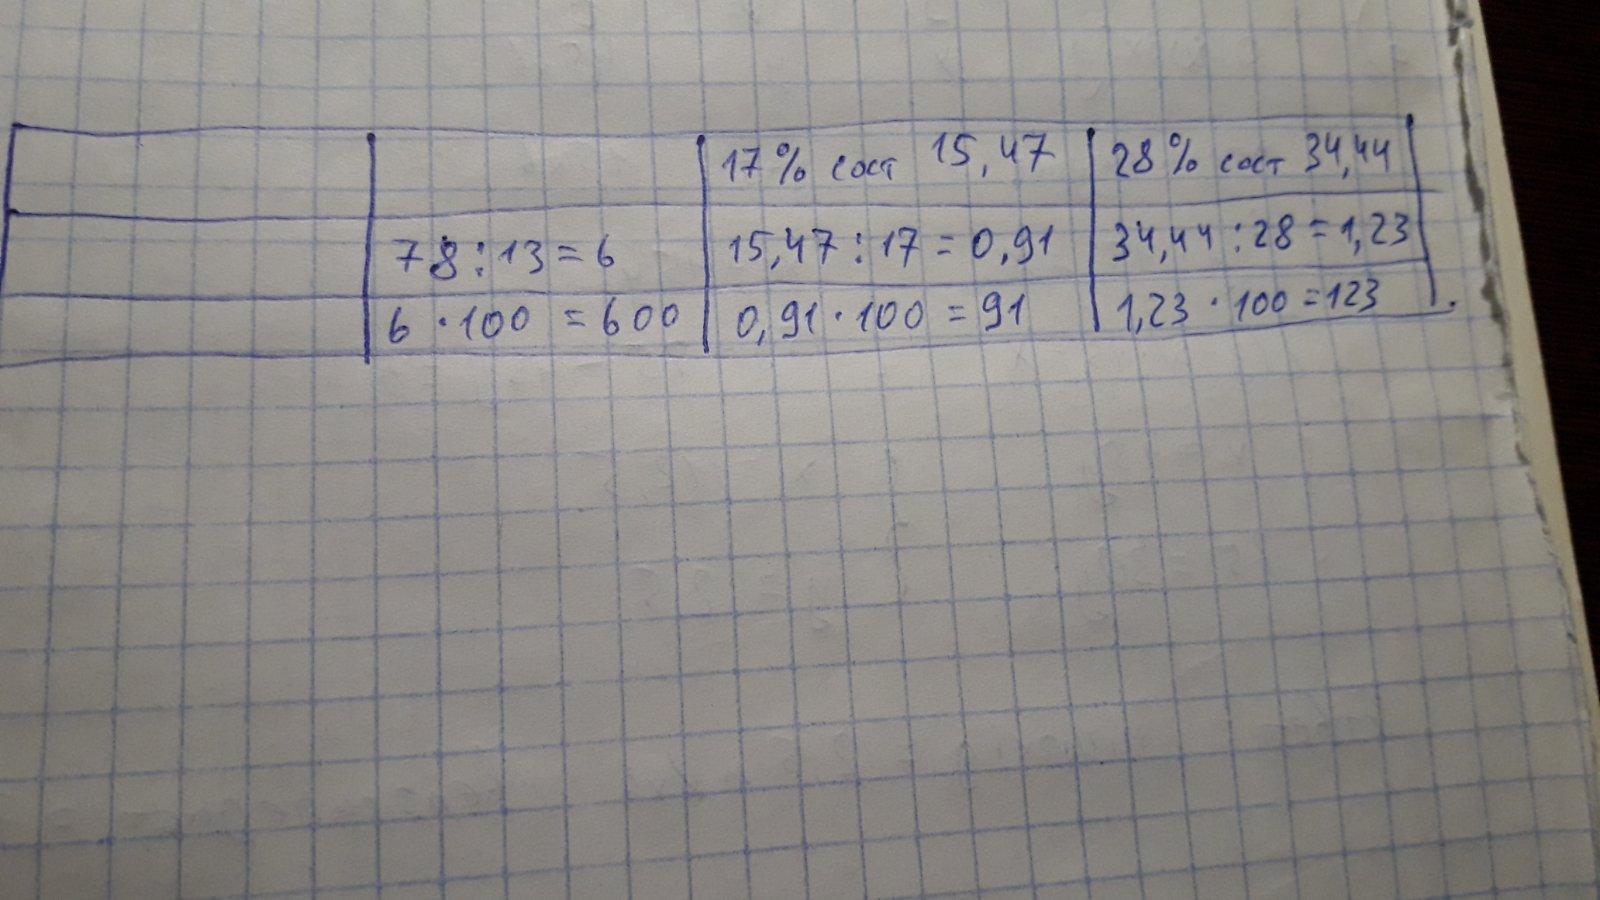 17% сост 15,47 28% сост 34,44
78:13=6 15,47:17=0,91 34,44:28=1,23
6·100=600 0,91·100=91 1,23·100=123.